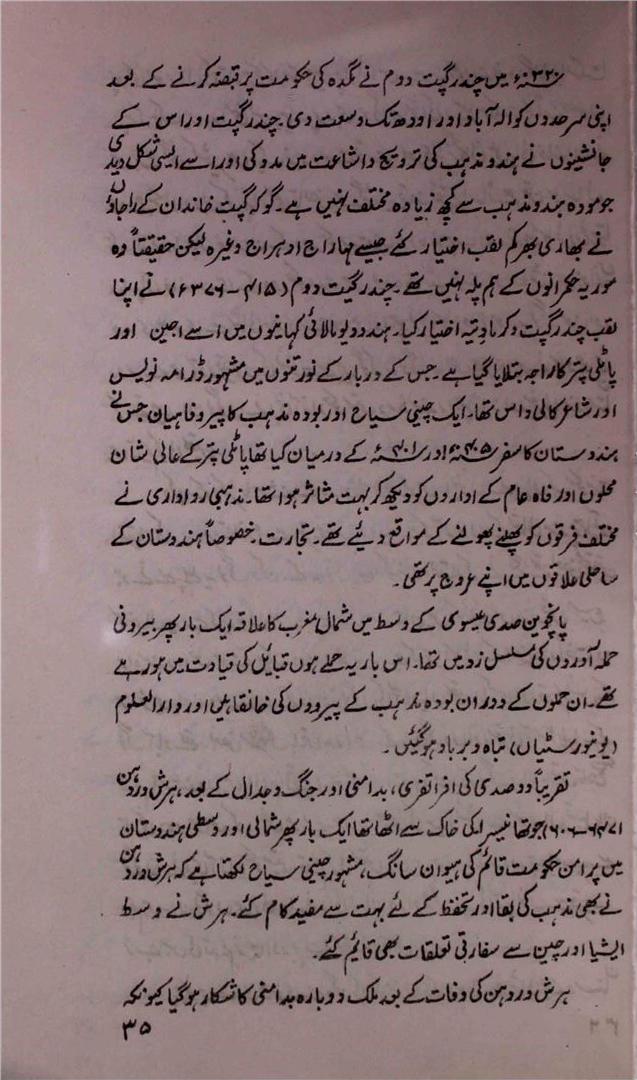 ۳۲۰ء میں چندر گپت دوم نے مگدہ کی حکومت پر قبضہ کرنے کے بعد
اپنی سرحدوں کو الہ آباد اور اودھ تک وسعت دی۔ چندر گپت اور اس کے
جانشینوں نے ہندو مذہب کی ترویج و اشاعت میں مدد کی اور اسے ایسی شکل دیدی
جو موده ہندو مذہب سے کچھ زیادہ مختلف نہیں ہے۔ گو کہ گپت خاندان کے راجاؤں
نے بھاری بھر کم لقب اختیار کئے جیسے مہاراج ادہراج وغیرہ لیکن حقیقتاً وہ
موریہ حکمرانوں کے ہم پلہ نہیں تھے۔ چندر گپت دوم (۴۱۵ - ۳۷۶ء) نے اپنا
لقب چندر گپت وکرمادتیہ اختیار کیا۔ ہندو دیو مالائی کہانیوں میں اسے اجین اور
پاٹلی پتر کا راجہ بتلایا گیا ہے۔ جس کے دربار کے نورتنوں میں مشہور ڈرامہ نویس
اور شاعر کالی داس تھا۔ ایک چینی سیاح اور بودہ مذہب کا پیرو فاہیان جس نے
ہندوستان کا سفر ۴۰۵ء اور ۴۰۱ء کے درمیان کیا تھا پاٹلی پتر کے عالی شان
محلوں اور فاہ عام کے اداروں کو دیکھ کر بہت متاثر ہوا تھا۔ مذہبی رواداری نے
مختلف فرقوں کو پھلنے پھولنے کے مواقع دیئے تھے۔ تجارت۔ خصوصاً ہندوستان کے
ساحلی علاقوں میں اپنے عروج پر تھی۔
پانچوین صدی عیسوی کے وسط میں شمال مغرب کا علاقہ ایک بار پھر بیرونی
حملہ آوردں کی مسلسل زد میں تھا۔ اس بار یہ حملے ہوں قبایل کی قیادت میں ہو رہے
تھے۔ ان حملوں کے دوران بودہ مذہب کے پیرووں کی خانقاہیں اور دارالعلوم
(یونیورسٹیاں) تباہ و برباد ہو گئیں۔
تقریباً دو صدی کی افراتفری، بدامنی اور جنگ و جدال کے بعد، ہرش وردہن
(۶۴۷ - ۶۰۶) جو تھانیسر کی خاک سے اٹھا تھا ایک بار پھر شمالی اور وسطی ہندوستان
میں پر امن حکومت قائم کی ہیوان سانگ، مشہور چینی سیاح لکھتا ہے کہ ہرش وردہن
نے بھی مذہب کی بقا اور تحفظ کے لئے بہت سے مفید کام کئے۔ ہرش نے وسط
ایشیا اور چین سے سفارتی تعلقات بھی قائم کئے۔
ہرش وردہن کی وفات کے بعد ملک دوبارہ بدامنی کا شکار ہو گیا کیونکہ
۳۵